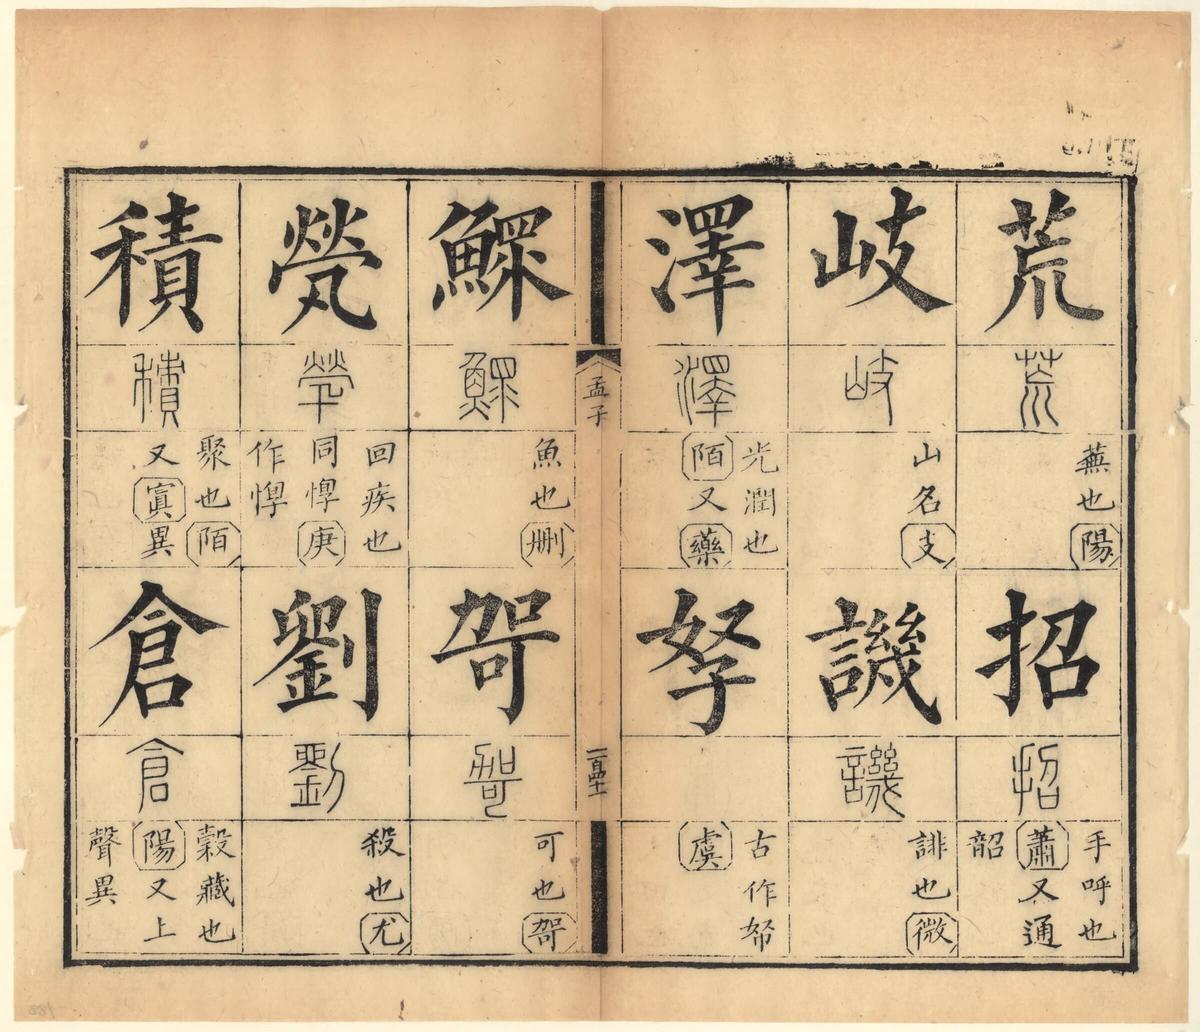 荒
荒
蕪也陽
招
招
手呼也
蕭又通
韶
岐
岐
山名支
譏
譏
誹也微
澤
澤
光潤也
陌又藥
孥
古作帑
虞
孟子
鰥
鰥
魚也刪
哿
哿
可也哿
煢
煢
回疾也
同惸庚
作惸
劉
劉
殺也尤
積
積
聚也陌
又寘異
倉
倉
穀藏也
陽又上
聲異